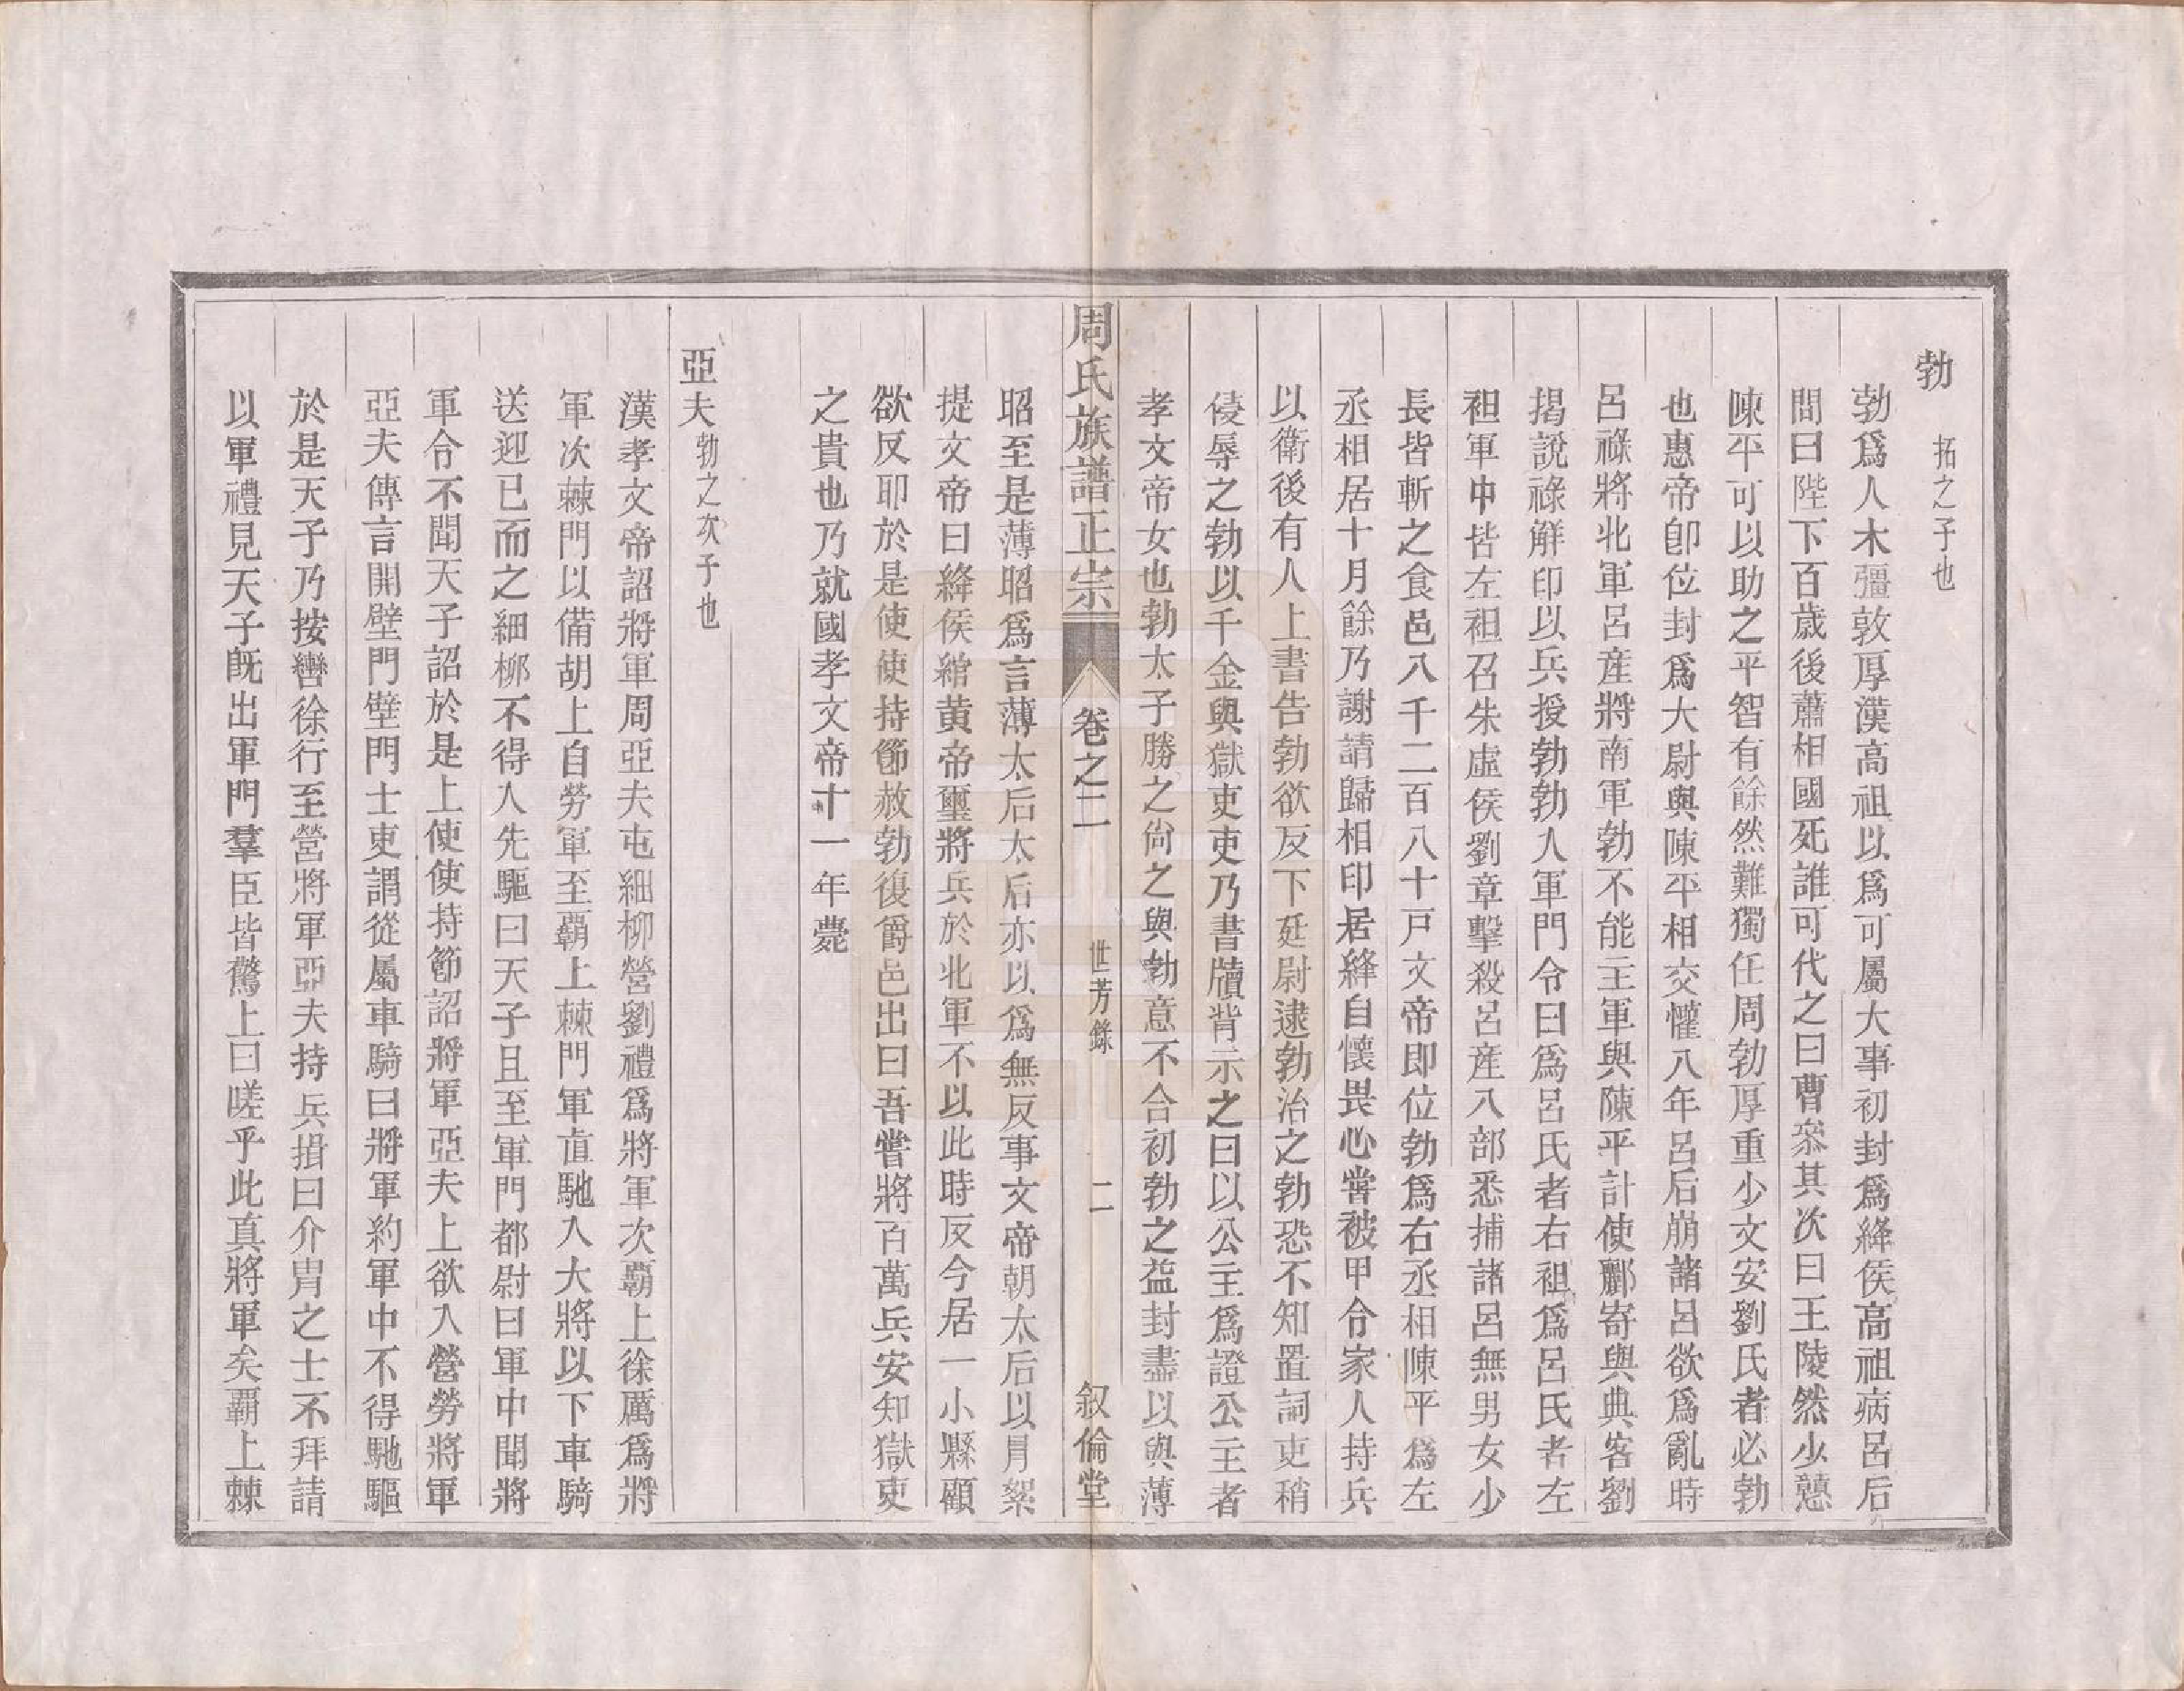 勃 拓之子也
勃爲人木彊敦厚漢高祖以爲可屬大事初封爲絳侯高祖病呂后
問曰陛下百歲後蕭相國死誰可代之曰曹叅其次曰王陵然少戇
陳平可以助之平智有餘然難獨任周勃厚重少文安劉氏者必勃
也惠帝卽位封爲大尉與陳平相交懽八年呂后崩諸呂欲爲亂時
呂祿將北軍呂産將南軍勃不能主軍與陳平計使酈寄與典客劉
揭說祿解印以兵授勃勃入軍門令曰爲呂氏者右袒爲呂氏者左
袒軍中皆左袒召朱虛侯劉章擊殺呂産入部悉捕諸呂無男女少
長皆斬之食邑八千二百八十戶文帝即位勃爲右丞相陳平爲左
丞相居十月餘乃謝請歸相印居絳自懷畏心嘗被甲令家人持兵
以衛後有人上書告勃欲反下廷尉逮勃治之勃恐不知置詞吏稍
侵辱之勃以千金與獄吏吏乃書牘背示之曰以公主爲證公主者
孝文帝女也勃太子勝之尙之與勃意不合初勃之益封盡以與薄
周氏族譜正宗 卷之二 世芳錄 二 叙倫堂
昭至是薄昭爲言薄太后太后亦以爲無反事文帝朝太后以冐絮
提文帝曰絳侯綰黄帝璽將兵於北軍不以此時反今居一小縣顧
欲反耶於是使使持節赦勃復爵邑出曰吾嘗將百萬兵安知獄吏
之貴也乃就國孝文帝十一年薨
亞夫 勃之次子也
漢孝文帝詔將軍周亞夫屯細柳營劉禮爲將軍次覇上徐厲爲將
軍次棘門以備胡上自勞軍至覇上棘門軍直馳入大將以下車騎
送迎已而之細柳不得入先驅曰天子且至軍門都尉曰軍中聞將
軍令不聞天子詔於是上使使持節詔將軍亞夫上欲入營勞將軍
亞夫傳言開壁門壁門士吏謂從屬車騎曰將軍約軍中不得馳驅
於是天子乃按轡徐行至營將軍亞夫持兵揖曰介胄之士不拜請
以軍禮見天子旣出軍門羣臣皆驚上曰嗟乎此真將軍矣覇上棘